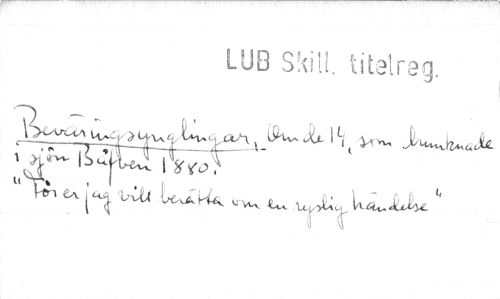 LUB Skill. titelreg.
Beväringsynglingar, Om de 14, som drunknade
i sjön Båfven 1880.
"För er jag vill berätta om en ryslig händelse"